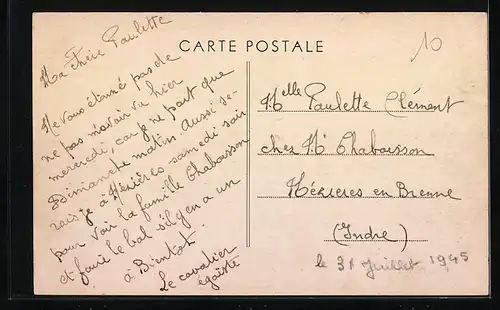 Ma Chère Paulette
CARTE POSTALE
10
Ne vous étonné pas de
ne pas m'avoir vu hier
mercredi, car je ne part que
Dimanche matin. Aussi se-
rais-je à Mézières samedi soir
pour voir la famille Chabausson
et faire le bal s'il y en a un
à Bientôt.
Le cavalier
égoïste
Melle Paulette Clément
chez Mr Chabausson
Mézieres en Brenne
(Indre)
le 31 Juillet 1945